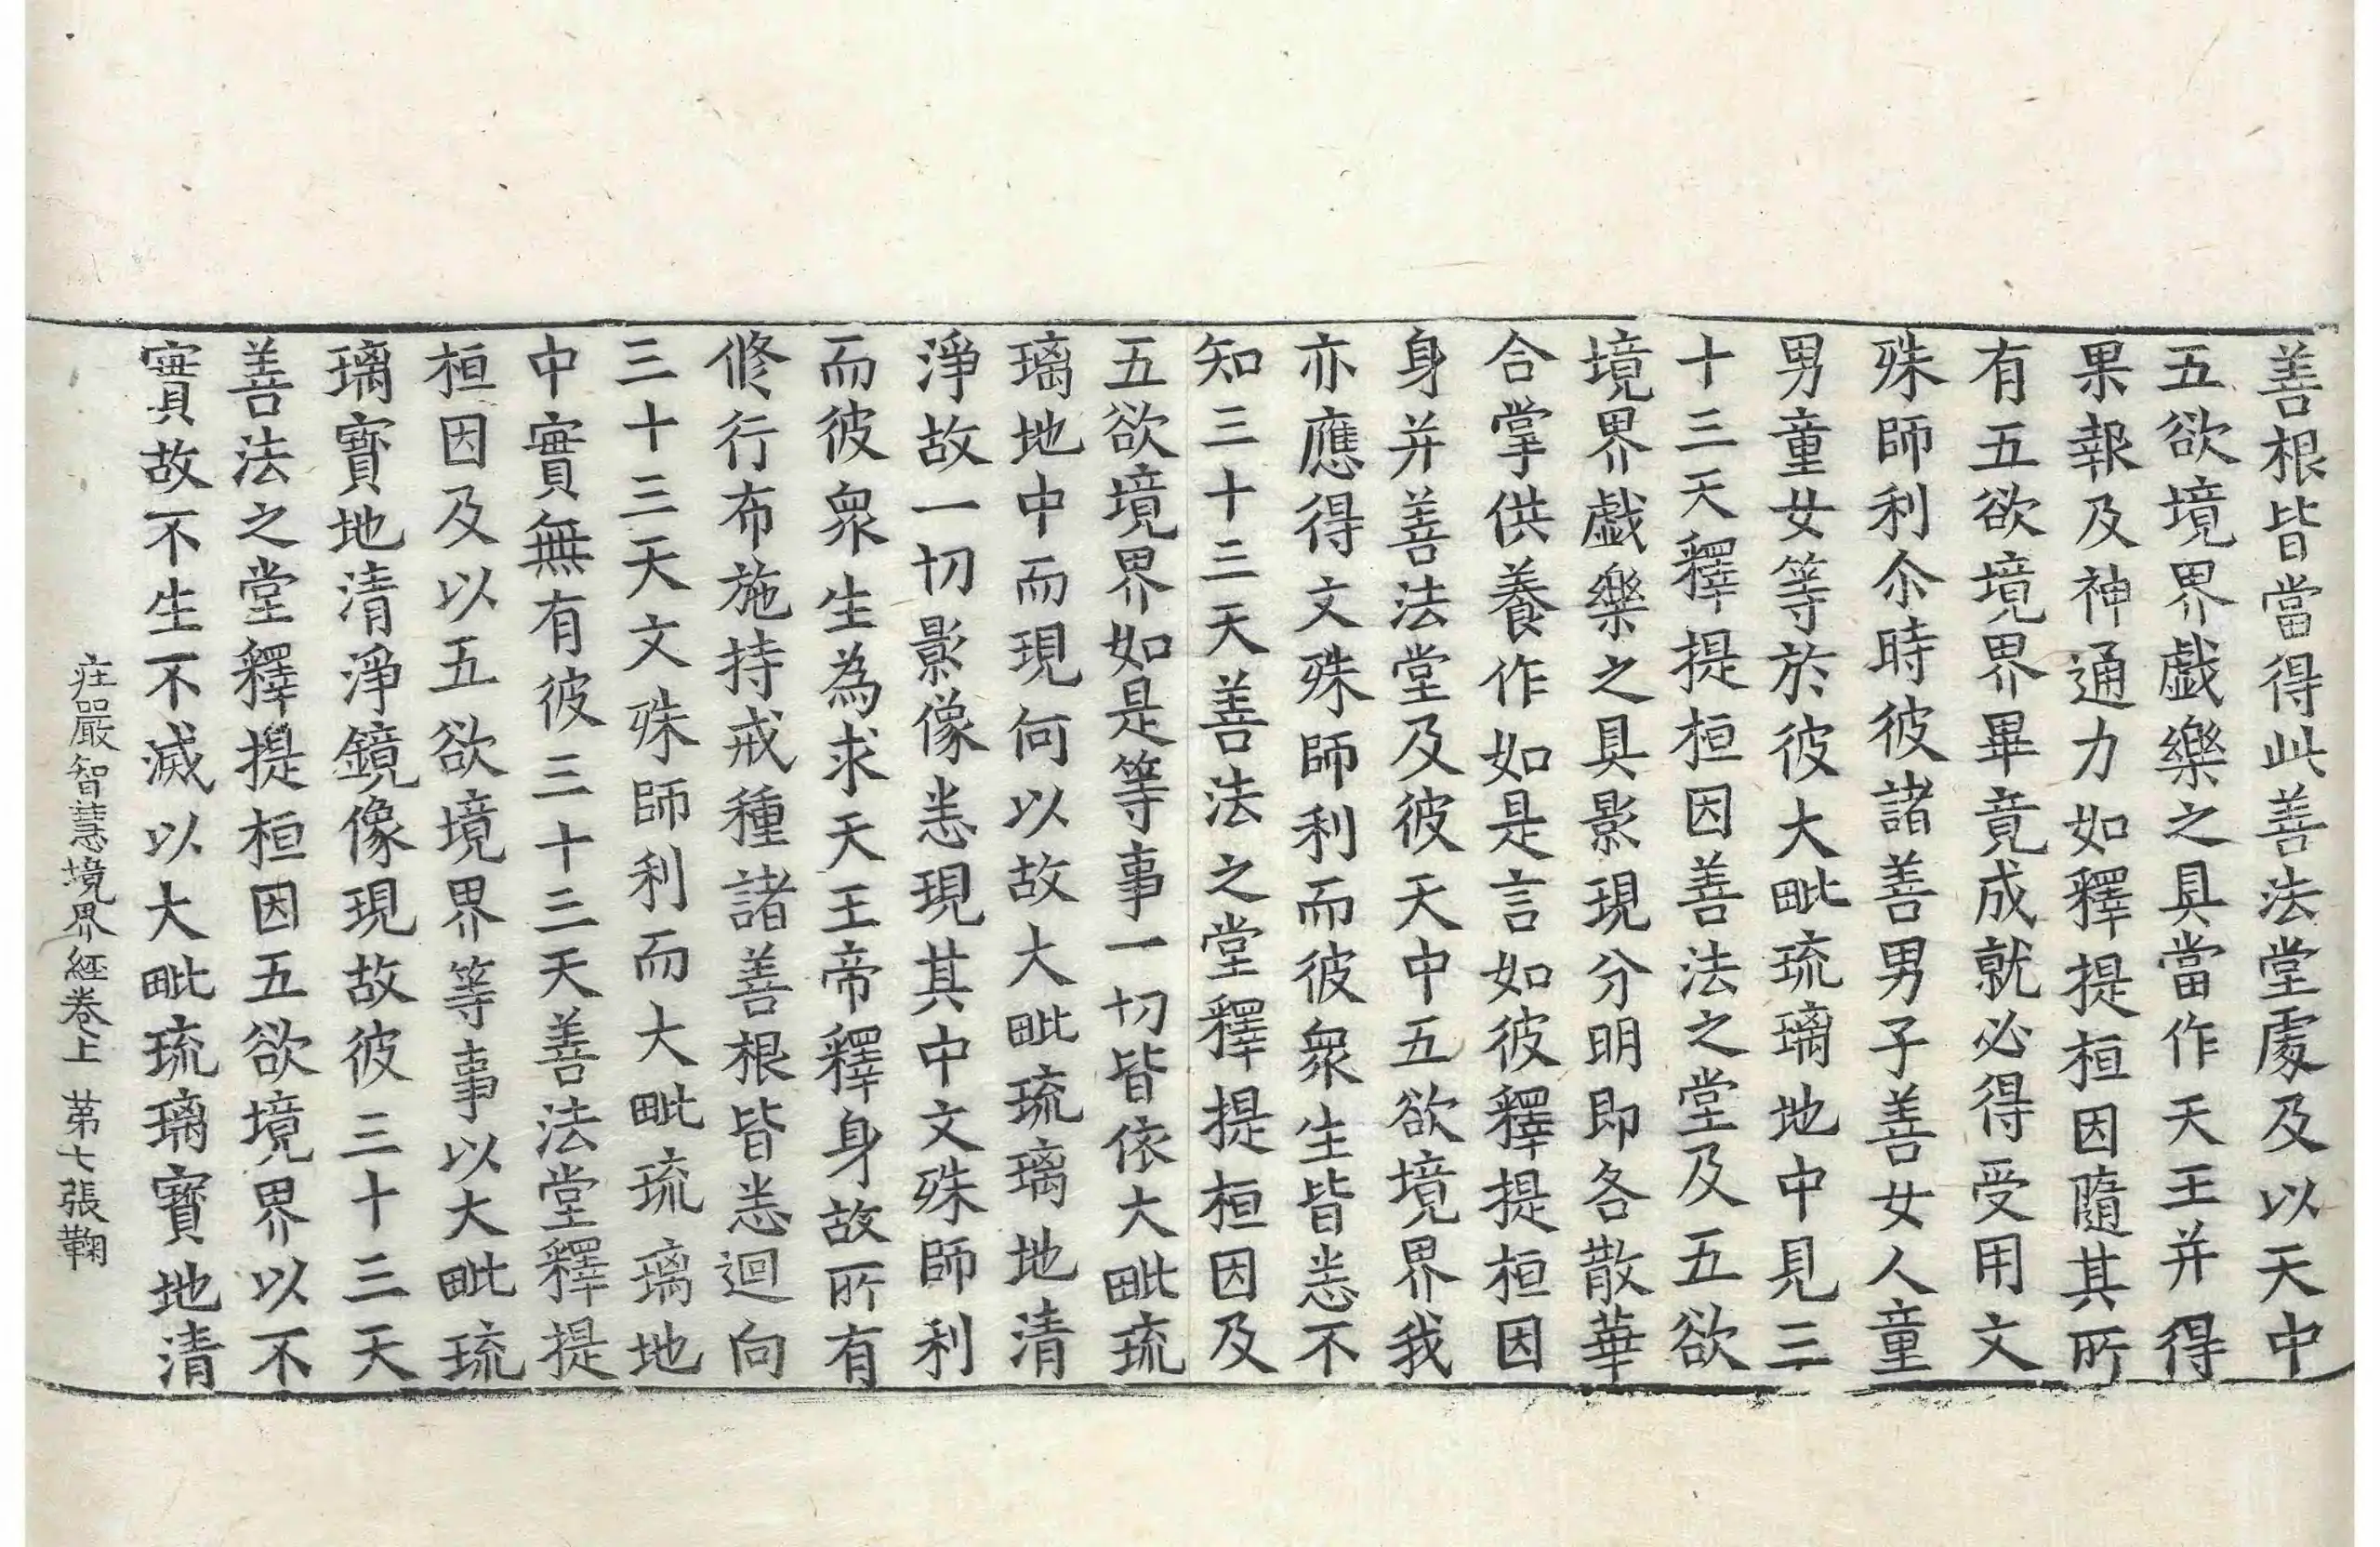 善根皆當得此善法堂處及以天中
五欲境界戯樂之具當作天王并得
果報及神通力如釋提桓因隨其所
有五欲境界畢竟成就必得受用文
殊師利尒時彼諸善男子善女人童
男童女等於彼大毗琉璃地中見三
十三天釋提桓因善法之堂及五欲
境界戯樂之具影現分明即各散華
合掌供養作如是言如彼釋提桓因
身并善法堂及彼天中五欲境界我
亦應得文殊師利而彼衆生皆悉不
知三十三天善法之堂釋提桓因及
五欲境界如是等事一切皆依大毗琉
璃地中而現何以故大毗琉璃地清
淨故一切影像悉現其中文殊師利
而彼衆生為求天王帝釋身故所有
修行布施持戒種諸善根皆悉迴向
三十三天文殊師利而大毗琉璃地
中實無有彼三十三天善法堂釋提
桓因及以五欲境界等事以大毗琉
璃寳地清淨鏡像現故彼三十三天
善法之堂釋提桓因五欲境界以不
實故不生不滅以大毗琉璃寳地清
庄嚴智慧境界経卷上 苐七張鞠